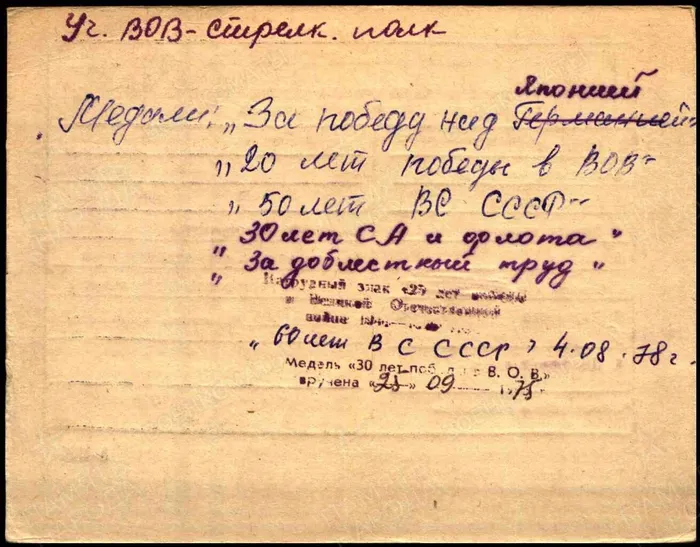 Уч. ВОВ - стрелк. полк
Японией
Медали: „За победу над Германией"
„20 лет победы в ВОВ"
„50 лет ВС СССР"
„30 лет СА и флота"
„За доблестный труд"
Нагрудный знак «25 лет победы
в Великой Отечественной
войне
„60 лет ВС СССР" 4.08.78 г.
Медаль «30 лет поб. в В. О. В.»
вручена « » 09 1975